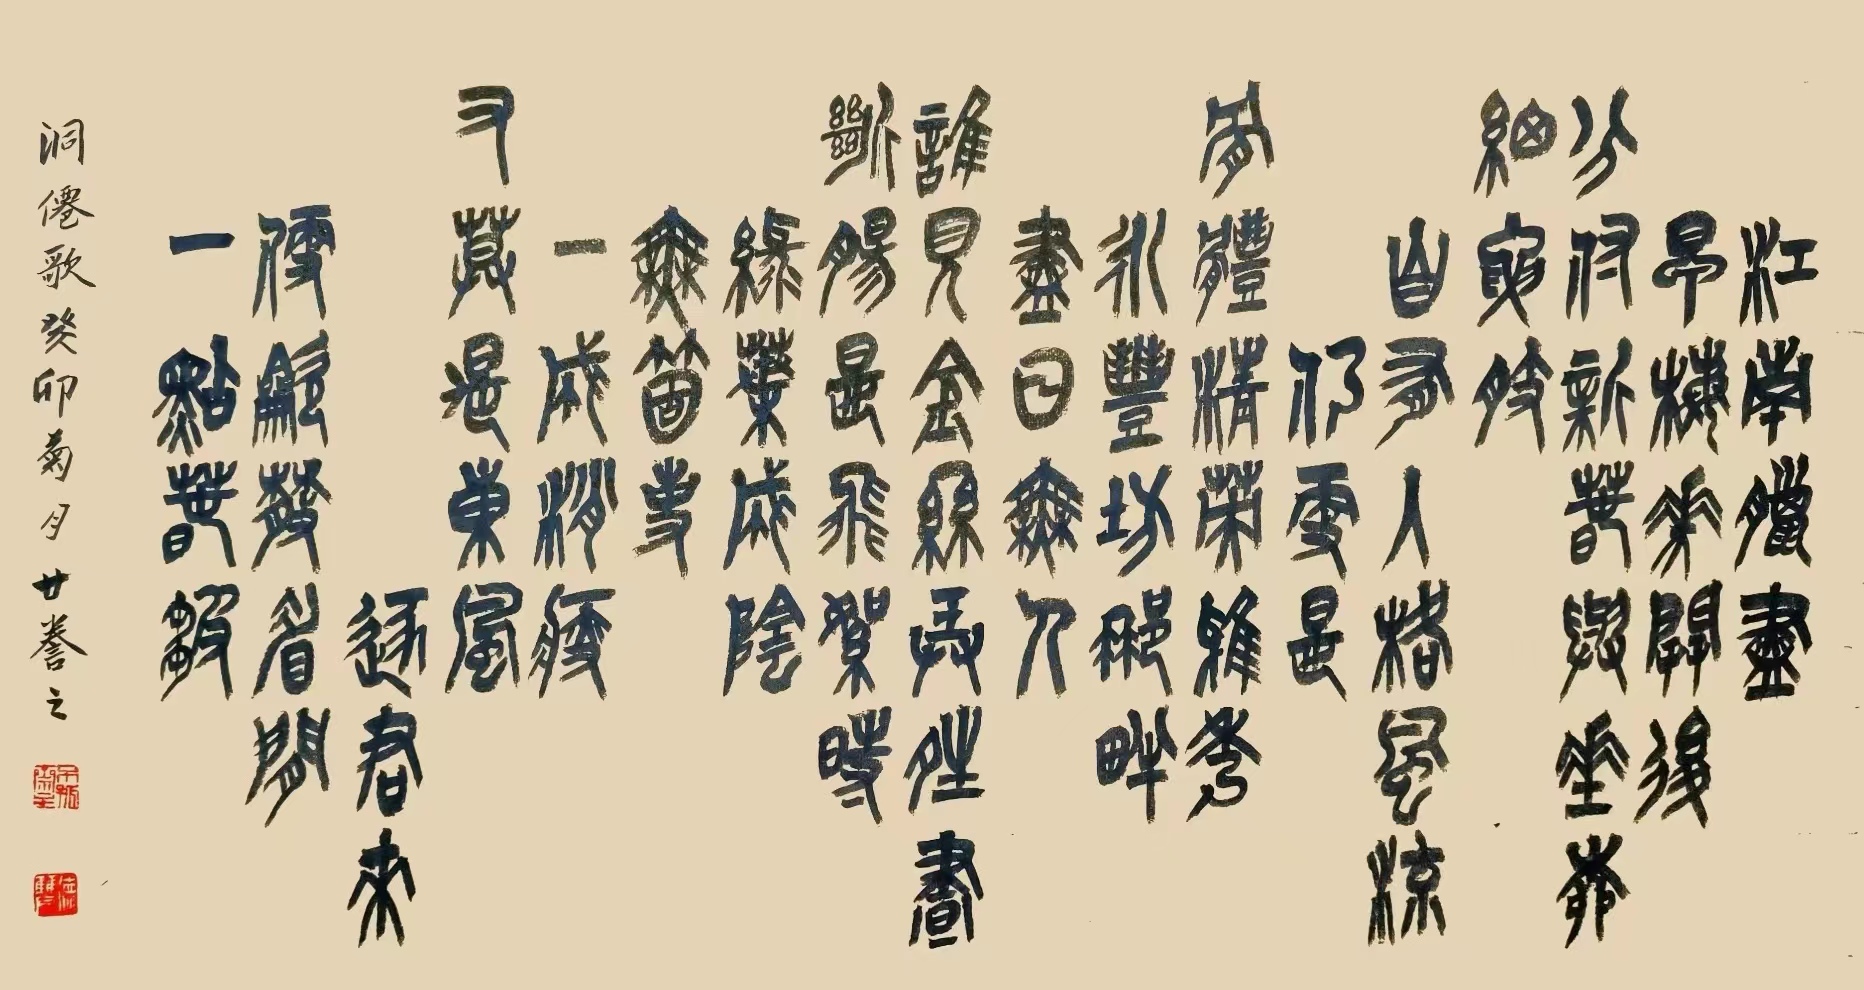 江南臘盡
早梅花開後
分付新春與垂柳
細腰肢
自有入格風流
仍更是
骨體清英雅秀
永豐坊那畔
盡日無人
誰見金絲弄晴晝
斷腸是飛絮時
綠葉成陰
無箇事
一成消瘦
又莫是東風
逐君來
便吹散眉間
一點春皺
洞僊歌癸卯菊月廿誊之